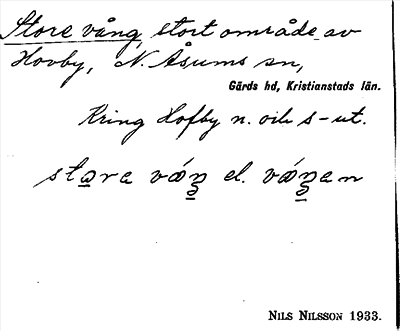 Store vång, stort område av
Hovby, N. Åsums sn,
Gärds hd, Kristianstads län.
Kring Hofby n. och s-ut.
el.
NILS NILSSON 1933.